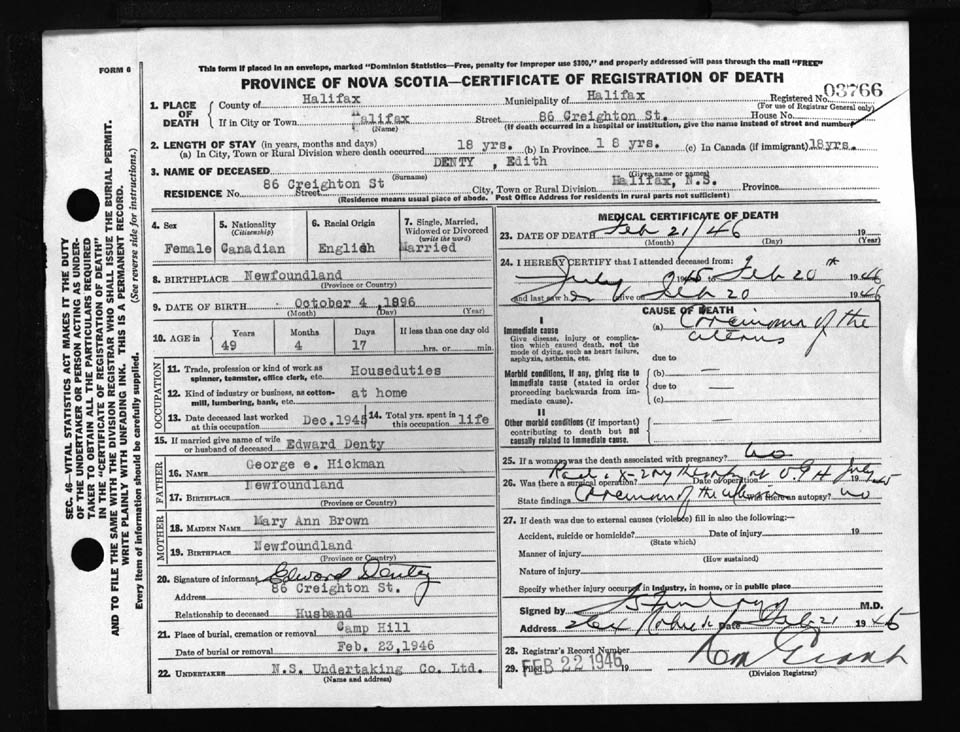 FORM 6
This form if placed in an envelope, marked "Dominion Statistics—Free, penalty for improper use $300," and properly addressed will pass through the mail "FREE"
PROVINCE OF NOVA SCOTIA—CERTIFICATE OF REGISTRATION OF DEATH
1. PLACE OF DEATH
County of Halifax Municipality of Halifax Registered No. 03766
(For use of Registrar General only)
If in City or Town Halifax Street 86 Creighton St. House No.
(Name) (If death occurred in a hospital or institution, give the name instead of street and number)
2. LENGTH OF STAY (in years, months and days)
(a) In City, Town or Rural Division where death occurred 18 yrs. (b) In Province 18 yrs. (c) In Canada (if immigrant) 18yrs.
3. NAME OF DECEASED DENTY , Edith
(Surname) (Given name or names)
RESIDENCE No. 86 Creighton St Street City, Town or Rural Division Halifax, N.S. Province
(Residence means usual place of abode. Post Office Address for residents in rural parts not sufficient)
SEC. 46—VITAL STATISTICS ACT MAKES IT THE DUTY
OF THE UNDERTAKER OR PERSON ACTING AS UNDER-
TAKER TO OBTAIN ALL THE PARTICULARS REQUIRED
IN THE "CERTIFICATE OF REGISTRATION OF DEATH"
AND TO FILE THE SAME WITH THE DIVISION REGISTRAR WHO SHALL ISSUE THE BURIAL PERMIT.
WRITE PLAINLY WITH UNFADING INK. THIS IS A PERMANENT RECORD.
Every item of information should be carefully supplied. (See reverse side for instructions.)
4. Sex
Female
5. Nationality
(Citizenship)
Canadian
6. Racial Origin
English
7. Single, Married,
Widowed or Divorced
(write the word)
Married
8. BIRTHPLACE Newfoundland
(Province or Country)
9. DATE OF BIRTH October 4 ,1896
(Month) (Day) (Year)
10. AGE in
Years Months Days If less than one day old
49 4 17 hrs. or min.
OCCUPATION
11. Trade, profession or kind of work as
spinner, teamster, office clerk, etc. Houseduties
12. Kind of industry or business, as cotton-
mill, lumbering, bank, etc. at home
13. Date deceased last worked
at this occupation Dec.1945
14. Total yrs. spent in
this occupation life
15. If married give name of wife
or husband of deceased Edward Denty
FATHER
16. NAME George e. Hickman
17. BIRTHPLACE Newfoundland
(Province or Country)
MOTHER
18. MAIDEN NAME Mary Ann Brown
19. BIRTHPLACE Newfoundland
(Province or Country)
20. Signature of informant Edward Denty
Address 86 Creighton St.
Relationship to deceased Husband
21. Place of burial, cremation or removal Camp Hill
Date of burial or removal Feb. 23,1946
22. UNDERTAKER N.S. Undertaking Co. Ltd.
(Name and address)
MEDICAL CERTIFICATE OF DEATH
23. DATE OF DEATH Feb 21/46 19
(Month) (Day) (Year)
24. I HEREBY CERTIFY that I attended deceased from:
July 1945 to Feb 20th 1946
and last saw her alive on Feb 20 1946
CAUSE OF DEATH
I
Immediate cause
Give disease, injury or complica-
tion which caused death, not the
mode of dying, such as heart failure,
asphyxia, asthenia, etc.
(a) Carcinoma of the
uterus
due to
Morbid conditions, if any, giving rise to
immediate cause (stated in order
proceeding backwards from im-
mediate cause).
(b) —
due to —
(c)
II
Other morbid conditions (if important)
contributing to death but not
causally related to immediate cause.
25. If a woman was the death associated with pregnancy? no
x-ray July 1945
26. Was there a surgical operation? Date of operation 19
State findings Carcinoma of the uterus Was there an autopsy? no
27. If death was due to external causes (violence) fill in also the following:—
Accident, suicide or homicide? Date of injury 19
(State which)
Manner of injury
(How sustained)
Nature of injury
Specify whether injury occurred in industry, in home, or in public place
Signed by M.D.
Address Date Feb 21 1946
28. Registrar's Record Number
29. Filed FEB 22 1946 19
(Division Registrar)